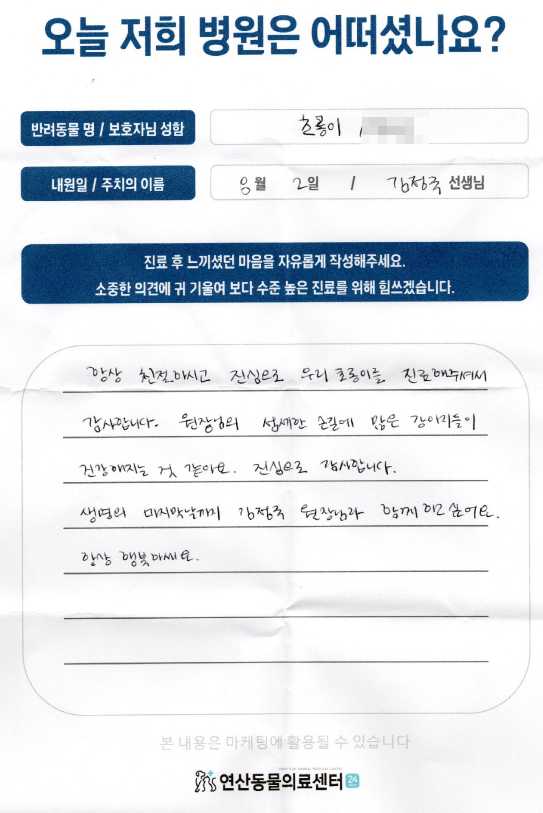 오늘 저희 병원은 어떠셨나요?
반려동물 명 / 보호자님 성함
초롱이 /
내원일 / 주치의 이름
8월 2일 / 김정국 선생님
진료 후 느끼셨던 마음을 자유롭게 작성해주세요.
소중한 의견에 귀 기울여 보다 수준 높은 진료를 위해 힘쓰겠습니다.
항상 친절하시고 진심으로 우리 초롱이를 진료해주셔서
감사합니다. 원장님의 섬세한 손길에 많은 강아지들이
건강해지는 것 같아요. 진심으로 감사합니다.
생명의 마지막날까지 김정국 원장님과 함께 하고 싶어요.
항상 행복하세요.
본 내용은 마케팅에 활용될 수 있습니다
연산동물의료센터 24